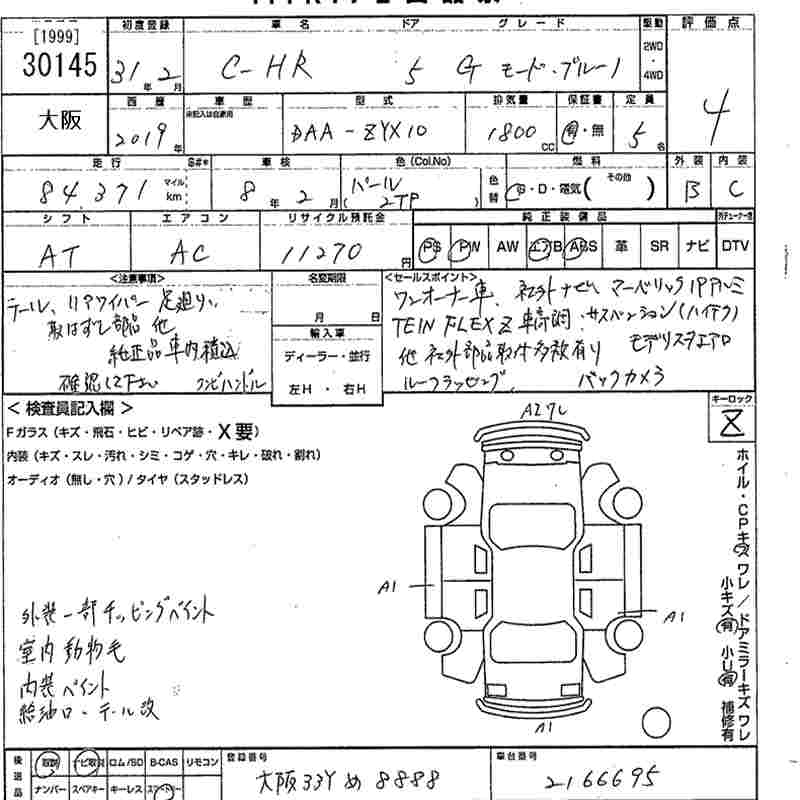 [1999]
30145
大阪
初度登録 車名 ドア グレード 駆動 評価点
31年 2月 C-HR 5 G モード・ブルーノ 2WD・4WD 4
西暦 車歴 型式 排気量 保証書 定員
2019年 未記入は自家用 DAA-ZYX10 1800cc 有・無 5名
走行 車検 色(Col.No) 色替 燃料 外装 内装
84,371 マイル km 8年 2月 (パール 2TP) G・D・電気( その他 ) B C
シフト エアコン リサイクル預託金 純正装備品
AT AC 11270円 PS PW AW エアB ABS 革 SR ナビ DTV
<注意事項>
テール、リアワイパー 足廻り、
取はずし部品 他
純正品車内積込
確認して下さい
名変期限
月 日
輸入車
ディーラー・並行
左H・右H
<セールスポイント>
ワンオーナー車、社外ナビ、マーベリック19アルミ
TEIN FLEX Z 車高調・サスペンション(ハイテク)
他 社外部品取付多数有り モデリスタエアロ
ルーフラッピング、 バックカメラ
<検査員記入欄>
Fガラス(キズ・飛石・ヒビ・リペア跡・X要)
内装(キズ・スレ・汚れ・シミ・コゲ・穴・キレ・破れ・割れ)
オーディオ(無し・穴)/タイヤ(スタッドレス)
キーロック
ホイル・CPキズ ワレ/ドアミラーキズ ワレ
小キズ(有) 小U(有) 補修有
A1
A1
A1
外装一部チッピングペイント
室内動物毛
内装ペイント
給油口・テール改
後送品 取説 ナビ取説 ロム/SD B-CAS リモコン
ナンバー スペアキー キーレス
登録番号
大阪 334 め 8888
車台番号
2166695